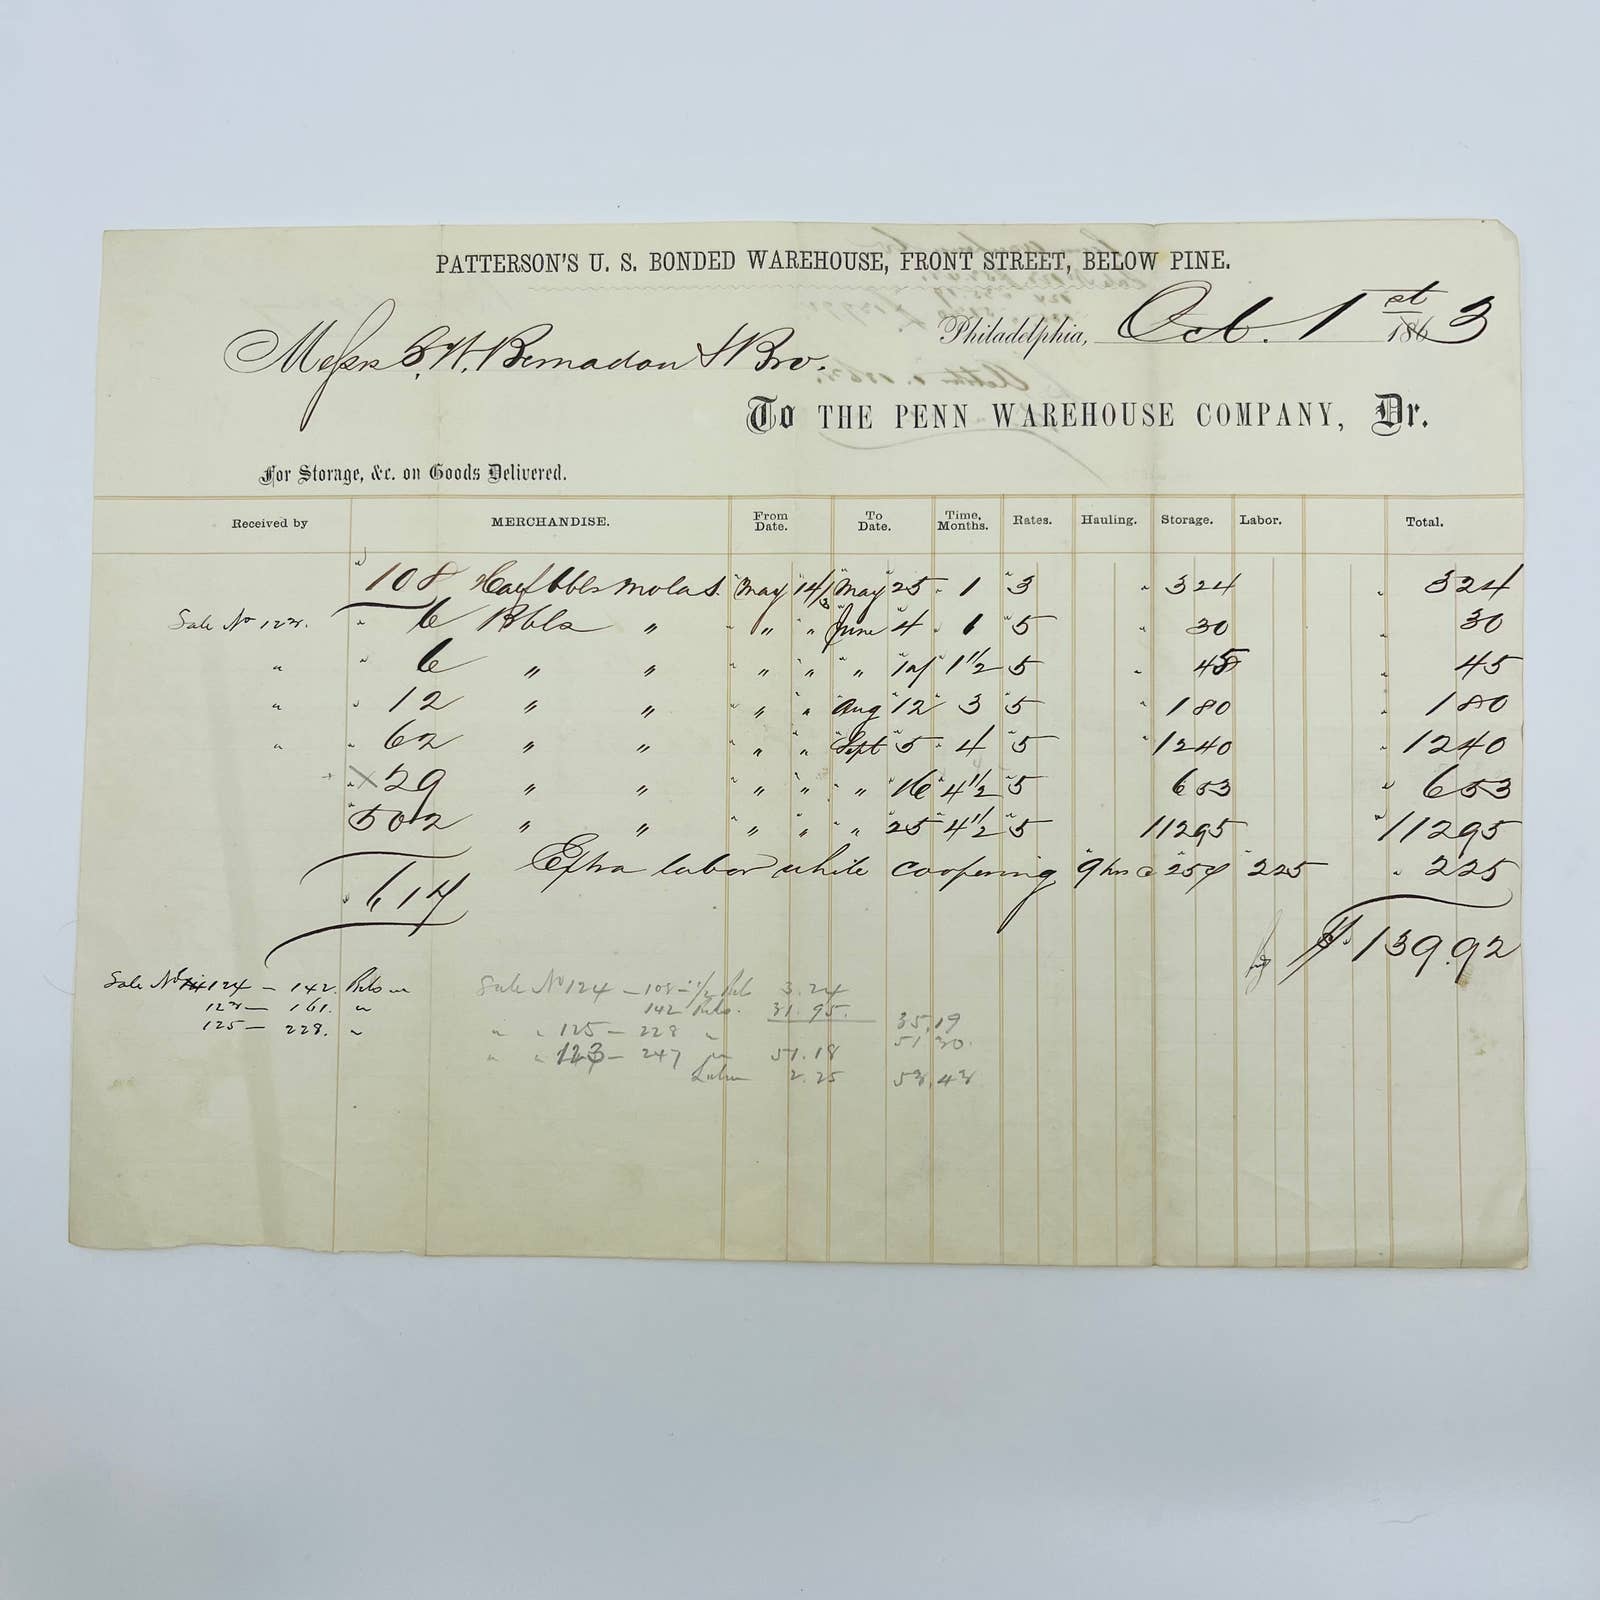 PATTERSON'S U. S. BONDED WAREHOUSE, FRONT STREET, BELOW PINE.
Philadelphia, Oct. 1st 1863
Messrs G. W. Bernadou & Bro.
To THE PENN WAREHOUSE COMPANY, Dr.
For Storage, &c. on Goods Delivered.
Received by MERCHANDISE. From Date. To Date. Time, Months. Rates. Hauling. Storage. Labor. Total.
108 Half bbls molas. May 14/63 May 25 1 3 324 324
Sale No 123. 6 Bbls " " " June 4 1 5 30 30
" 6 " " " " " 1 1/2 5 45 45
" 12 " " " " Aug 12 3 5 180 180
" 62 " " " " Sept 5 4 5 1240 1240
X 29 " " " " " 16 4 1/2 5 653 653
502 " " " " " 25 4 1/2 5 11295 11295
Extra labor while coopering 9 hrs @ 25¢ 225 225
614
$139.92
Sale No 124 - 142. Bbls
123 - 161. "
125 - 228. "
Sale No 124 - 108 - 1/2 Bbls 3.24
142 Bbls. 31.95. 35.19
" " 125 - 228 " 51.30.
" " 123 - 247 51.18
Labor 2.25 53.43